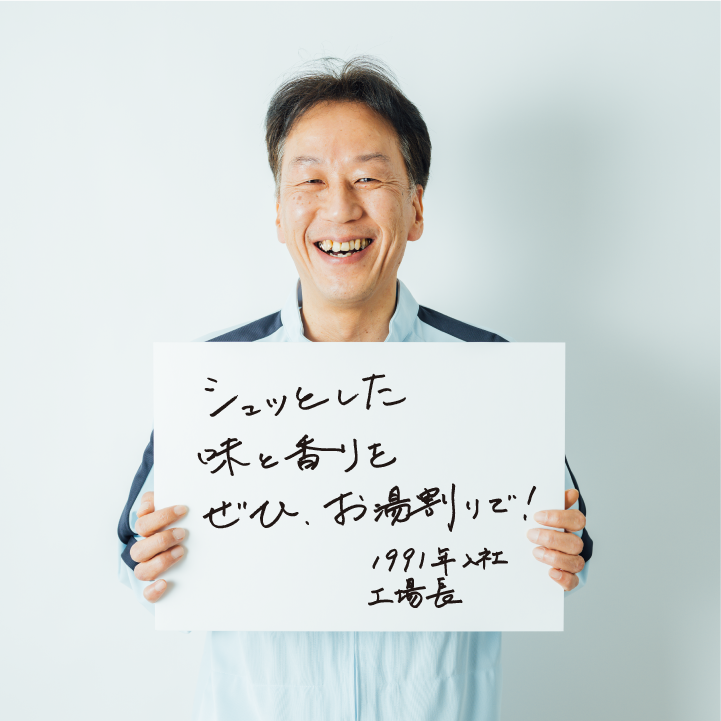 シュッとした
味と香りを
ぜひ、お湯割りで!
1991年入社
工場長